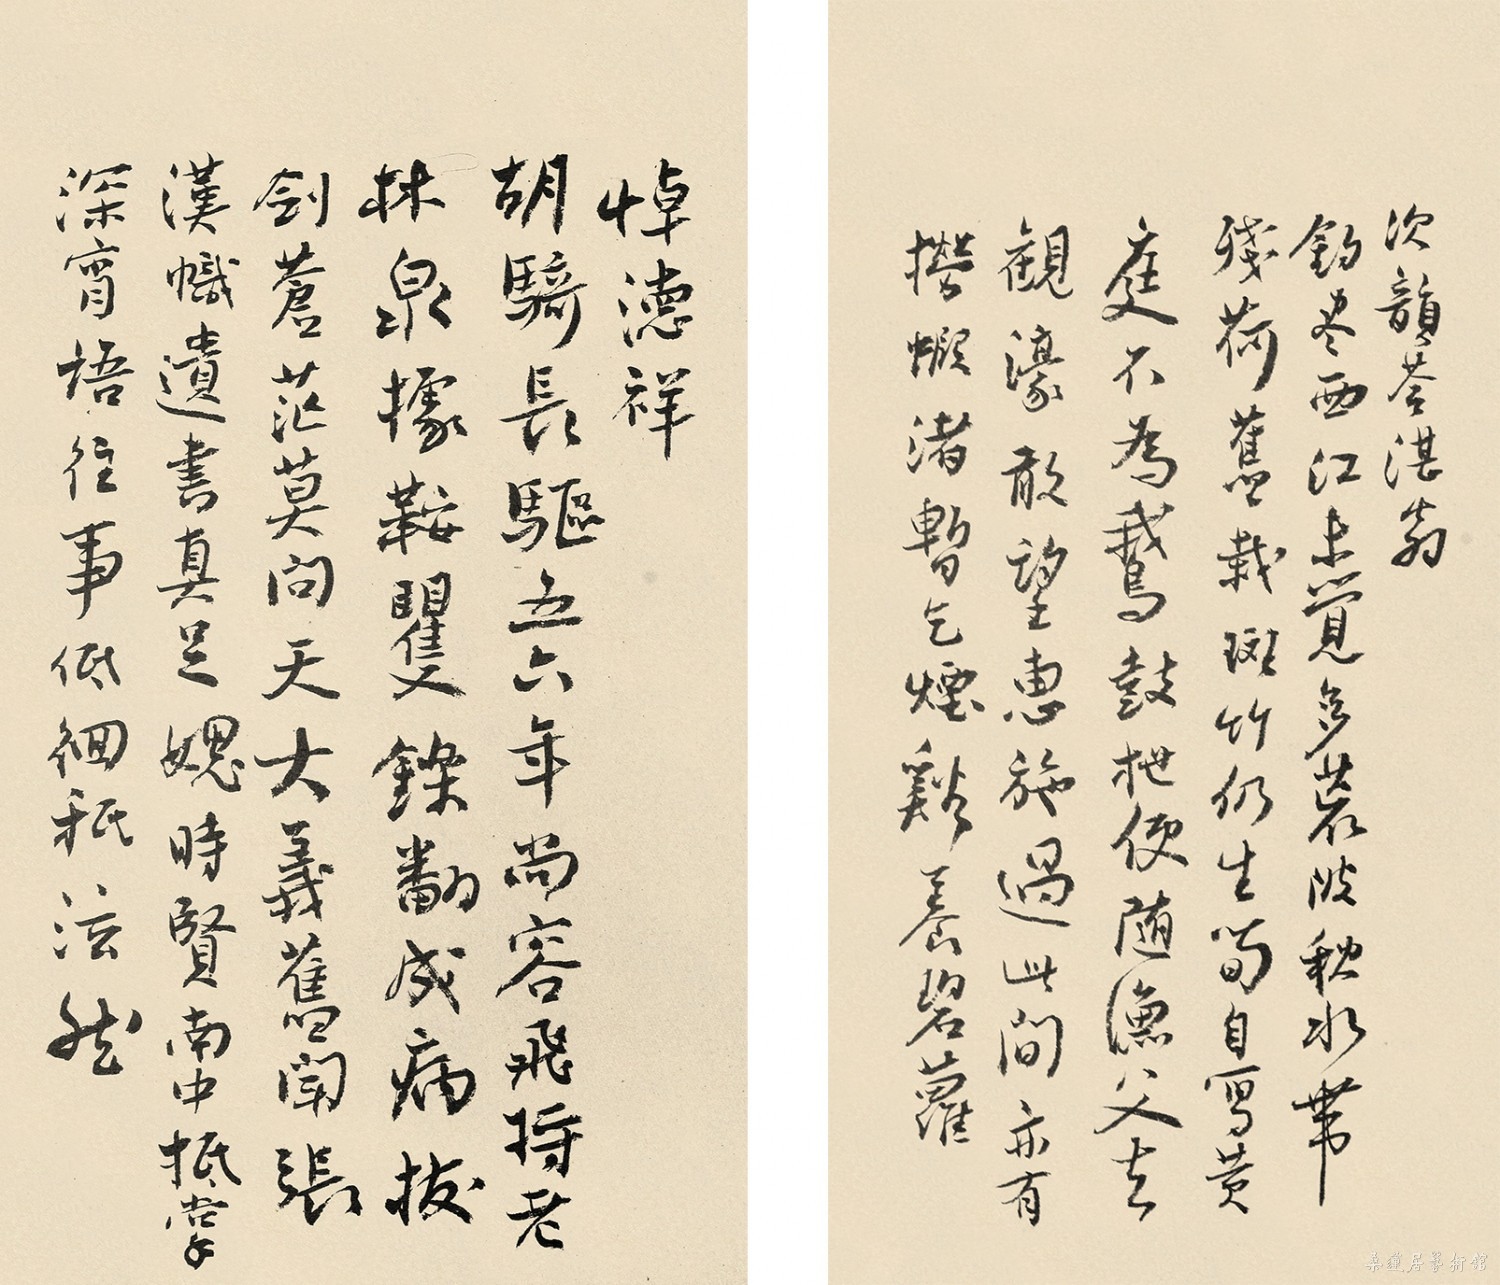 次韻荅湛翁
釣盡西江未覺多荒陂秋水帶
殘荷舊栽斑竹仍生筍自寫黃
庭不為鵝鼓枻便隨漁父去
觀濠敢望惠施過此間亦有
撈蝦渚暫乞煙谿養碧蘿
悼德祥
胡騎長驅五六年尚容飛將老
林泉據鞍矍鑠翻成病拔
劍蒼茫莫問天大義舊聞張
漢幟遺書真足媿時賢南中抵掌
深宵語往事低徊秖泫然
桑蓮居藝術館